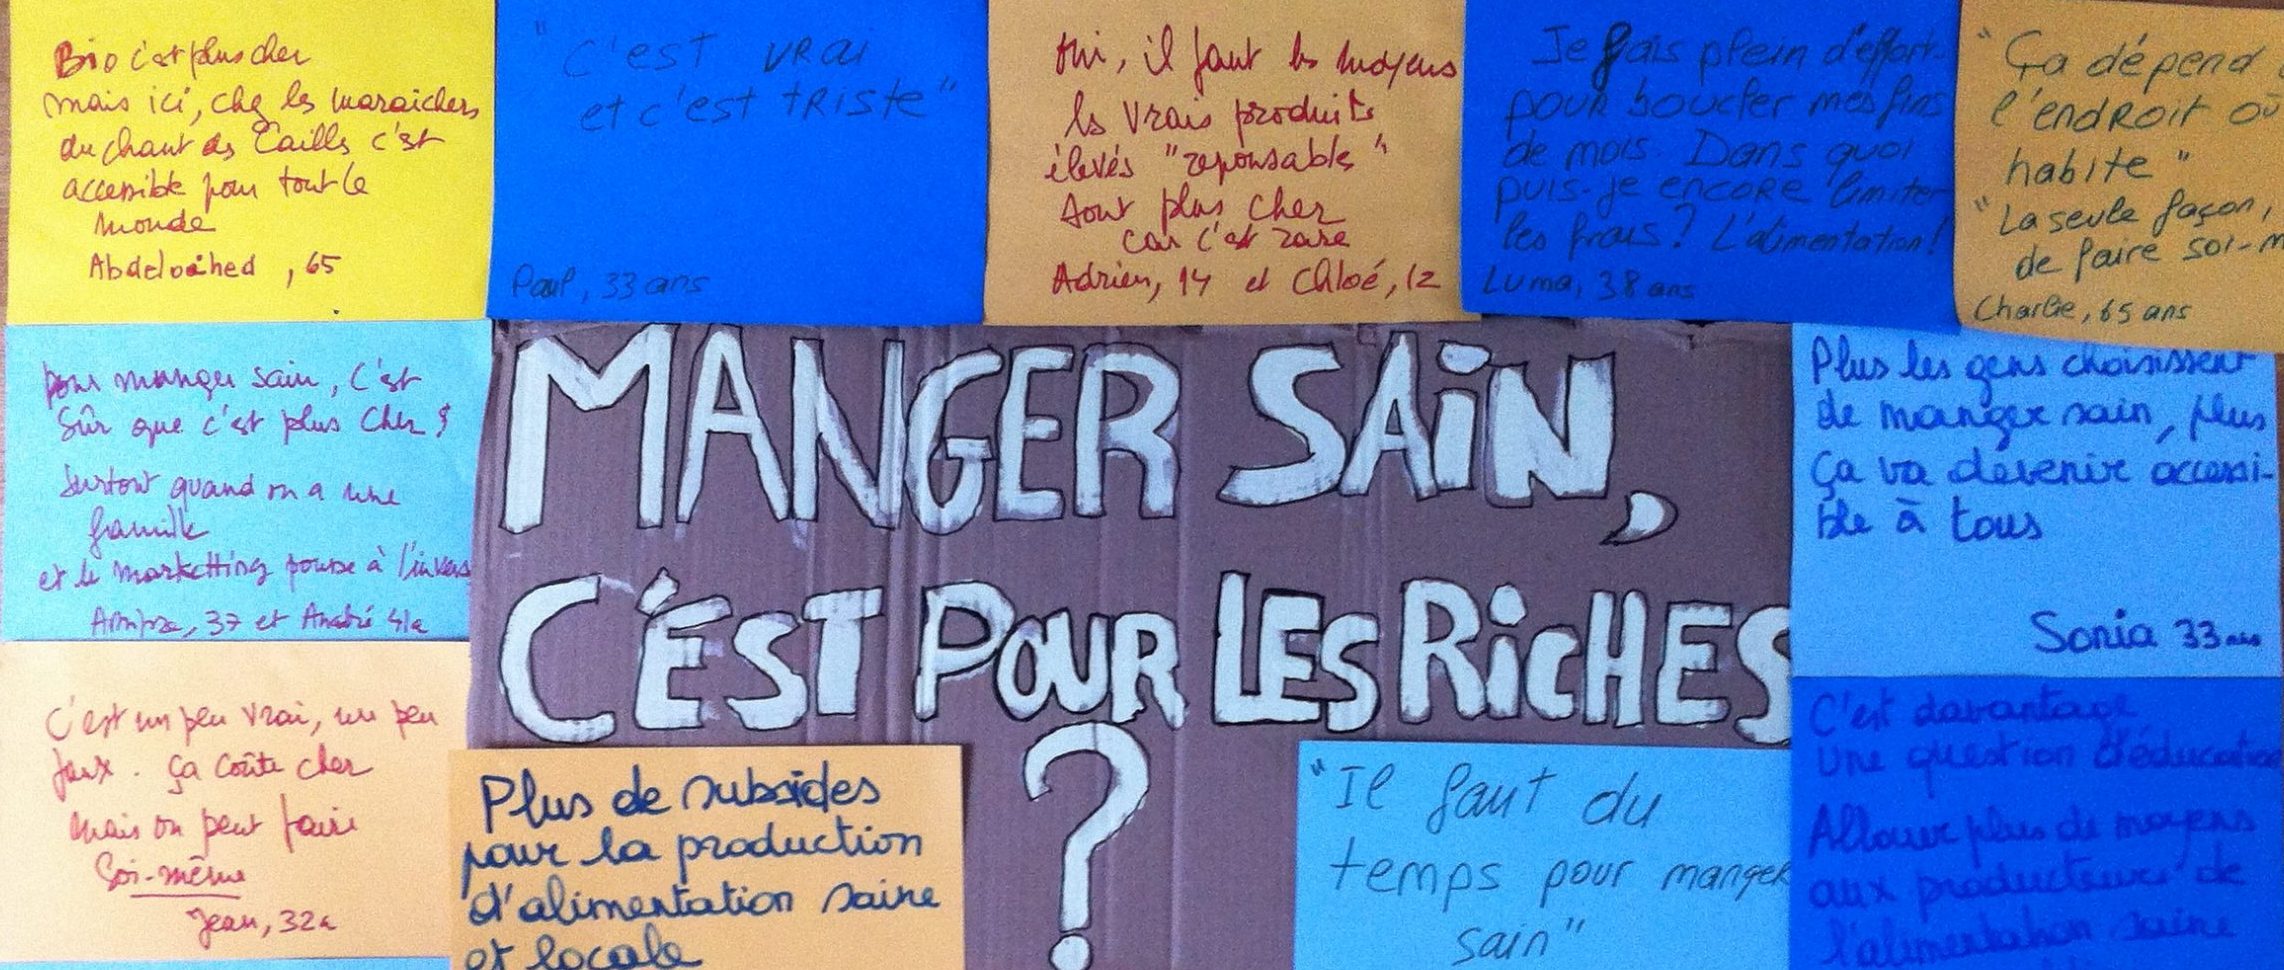 Bio c'est plus cher
mais ici, chez les maraichers
du chant des Cailles c'est
accessible pour tout le
monde
Abdelouahed, 65
"C'est vrai
et c'est triste"
Paul, 33 ans
Oui, il faut les moyens
les vrais produits
élevés "reponsables"
sont plus cher
car c'est rare
Adrien, 14 et Chloé, 12
Je fais plein d'effort
pour boucler mes fins
de mois. Dans quoi
puis-je encore limiter
les frais? L'alimentation!
Luma, 38 ans
"Ça dépend
l'endroit où
habite"
"La seule façon,
de faire soi-m
Charlie, 65 ans
pour manger sain, c'est
sûr que c'est plus cher !
surtout quand on a une
famille
et le marketting pousse à l'invers
37 et André 41a
C'est un peu vrai, un peu
faux. Ça coûte cher
mais on peut faire
soi-même
Jean, 32a
MANGER SAIN,
C'EST POUR LES RICHES
?
Plus les gens choisissent
de manger sain, plus
ça va devenir accessi-
ble à tous
Sonia 33 ans
Plus de subsides
pour la production
d'alimentation saine
et locale
"Il faut du
temps pour manger
sain"
C'est davantage
une question d'éducation
Allouer plus de moyens
aux producteurs de
l'alimentation saine